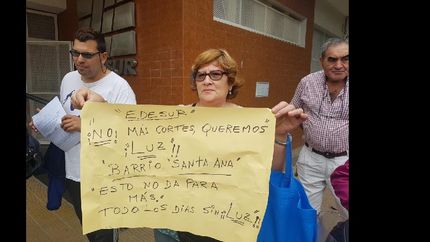 "EDESUR"
¡NO! MAS CORTES, QUEREMOS
¡¡LUZ!!
BARRIO "SANTA ANA"
"ESTO NO DA PARA
MÁS."
TODO LOS DIAS SIN ¡LUZ!!